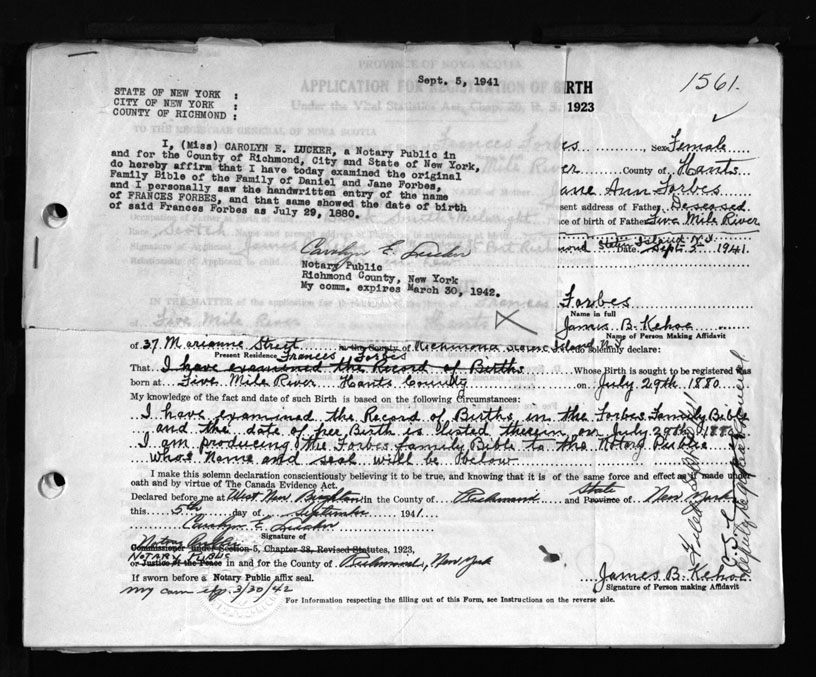 Sept. 5, 1941
STATE OF NEW YORK :
CITY OF NEW YORK :
COUNTY OF RICHMOND :
I, (Miss) CAROLYN E. LUCKER, a Notary Public in
and for the County of Richmond, City and State of New York,
do hereby affirm that I have today examined the original
Family Bible of the Family of Daniel and Jane Forbes,
and I personally saw the handwritten entry of the name
of FRANCES FORBES, and that same showed the date of birth
of said Frances Forbes as July 29, 1880.
Carolyn E. Lucker
Notary Public
Richmond County, New York
My comm. expires March 30, 1942.
PROVINCE OF NOVA SCOTIA
APPLICATION FOR REGISTRATION OF BIRTH
Under the Vital Statistics Act, Chap. 20, R. S. 1923
1561.
TO THE REGISTRAR GENERAL OF NOVA SCOTIA
es, Sex Female
er County of Hants
Jane Ann Forbes
esent address of Father Deseased
ce of birth of Father Five Mile River
mond Staten Island N.Y. Date Sept 5 1941.
IN THE MATTER of the application for
Forbes
Name in full
James B. Kehoe
Name of Person Making Affidavit
of 37 Marianne Street in the County of Richmond Staten Island N.Y. do solemnly declare:
Present Residence
Frances Forbes
That I have examined the Record of Births Whose Birth is sought to be registered was
born at Five Mile River Hants County on July 29th 1880.
My knowledge of the fact and date of such Birth is based on the following Circumstances:
I have examined the Record of Births in the Forbes Family Bible
and the date of free Birth is listed therein on July 29th 1880
I am producing the Forbes family Bible to the Notory Public
Whos Name and seal will be Below
I make this solemn declaration conscientiously believing it to be true, and knowing that it is of the same force and effect as if made under
oath and by virtue of The Canada Evidence Act.
Declared before me at West New Brighton in the County of Richmond and Province of State New York
this 5th day of September 1941
Carolyn E. Lucker
Signature of
Notary Public
Commissioner under Section 5, Chapter 38, Revised Statutes, 1923,
NOTARY PUBLIC
or Justice of the Peace in and for the County of Richmond, New York
If sworn before a Notary Public affix seal.
my com exp. 3/30/42
James B. Kehoe
Signature of Person making Affidavit
For Information respecting the filling out of this Form, see Instructions on the reverse side.
Filed Sept
Deputy Registrar General